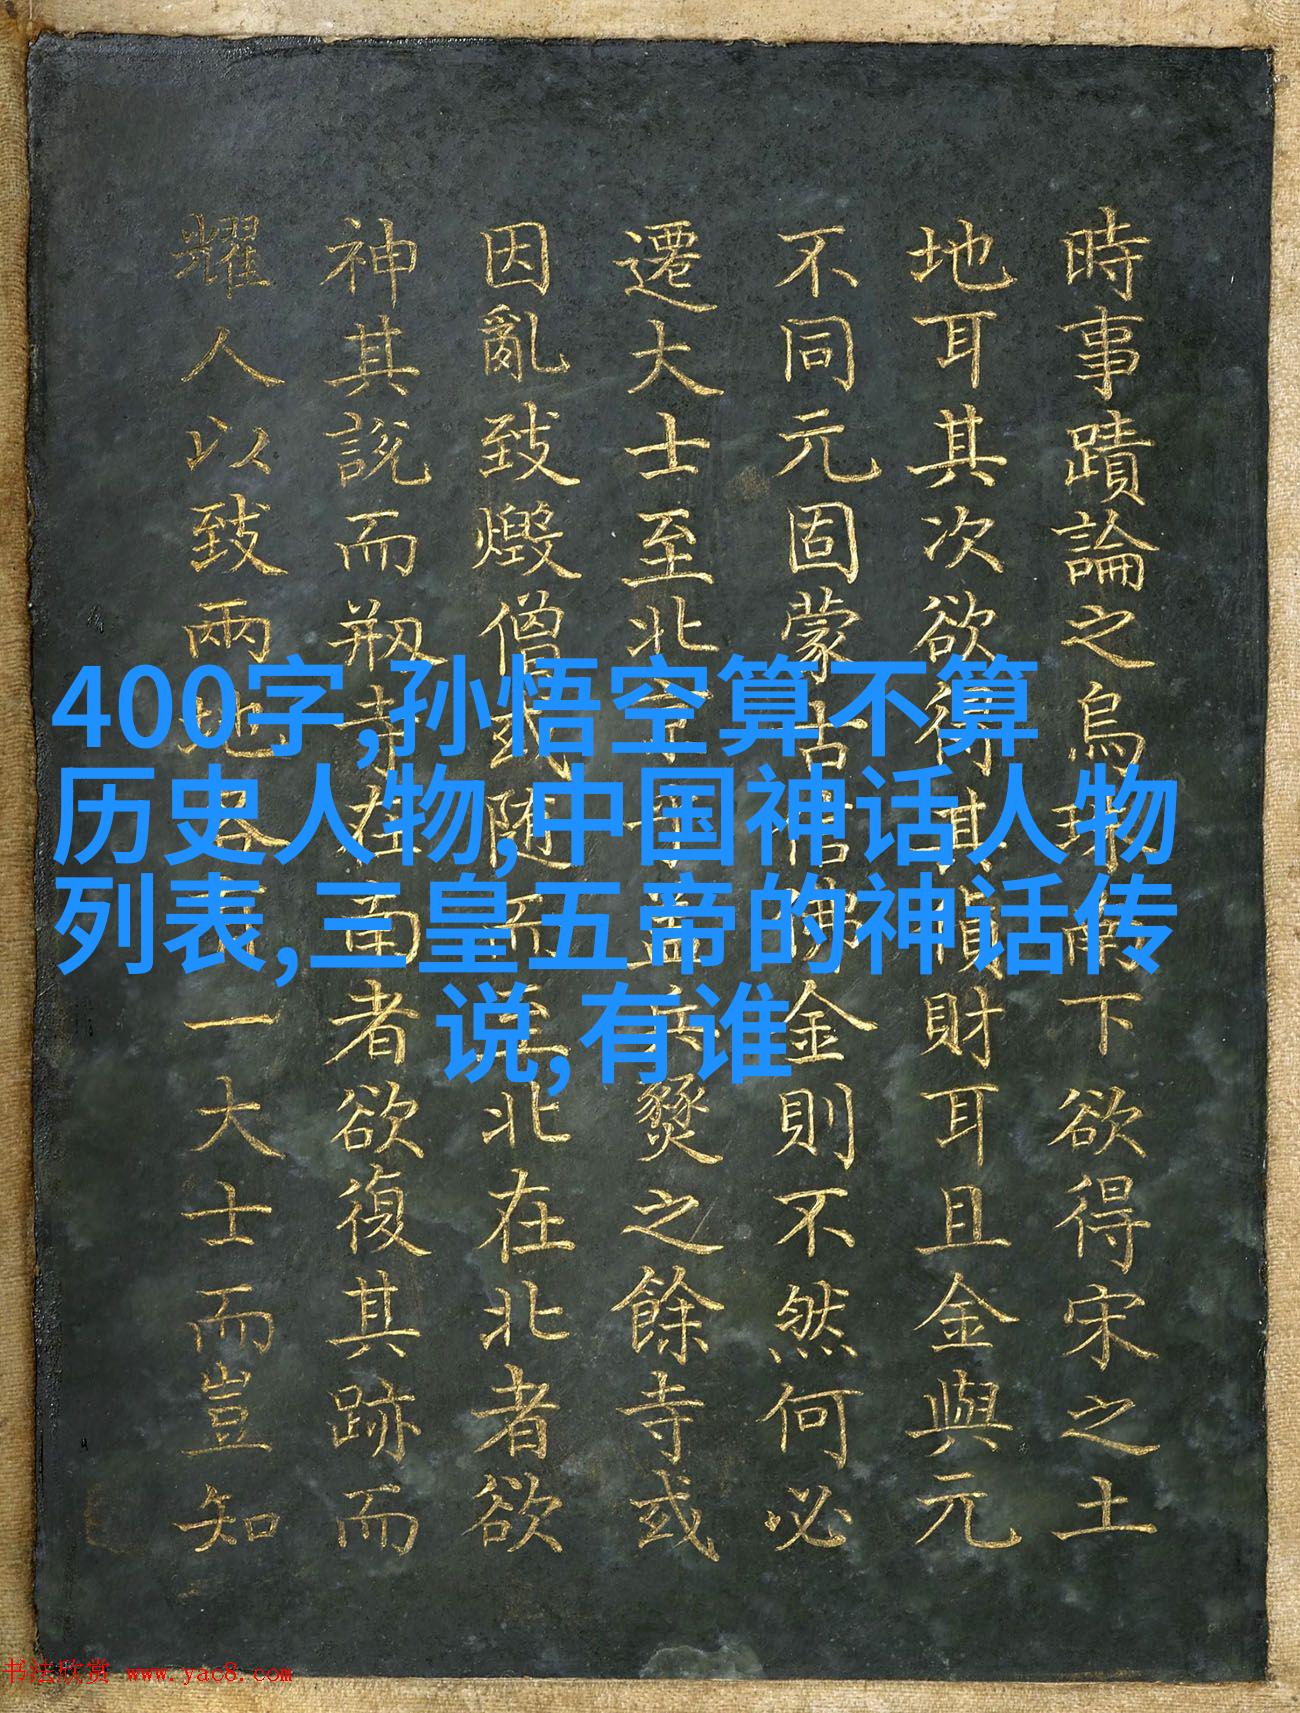 400字,孙悟空算不算
历史人物,中国神话人物
列表,三皇五帝的神话传
说,有谁
時事蹟論之烏珠南下欲得宋之土
地耳其次欲得其財耳且金與元
不同元固蒙古信佛金則不然何必
遷大士至北京乎盖兵燹之餘寺或
因亂致燬僧或随而至北在北者欲
神其說而剏寺在南者欲復其跡而
耀人以致兩地各一大士而豈知
书法欣赏 www.yac8.com